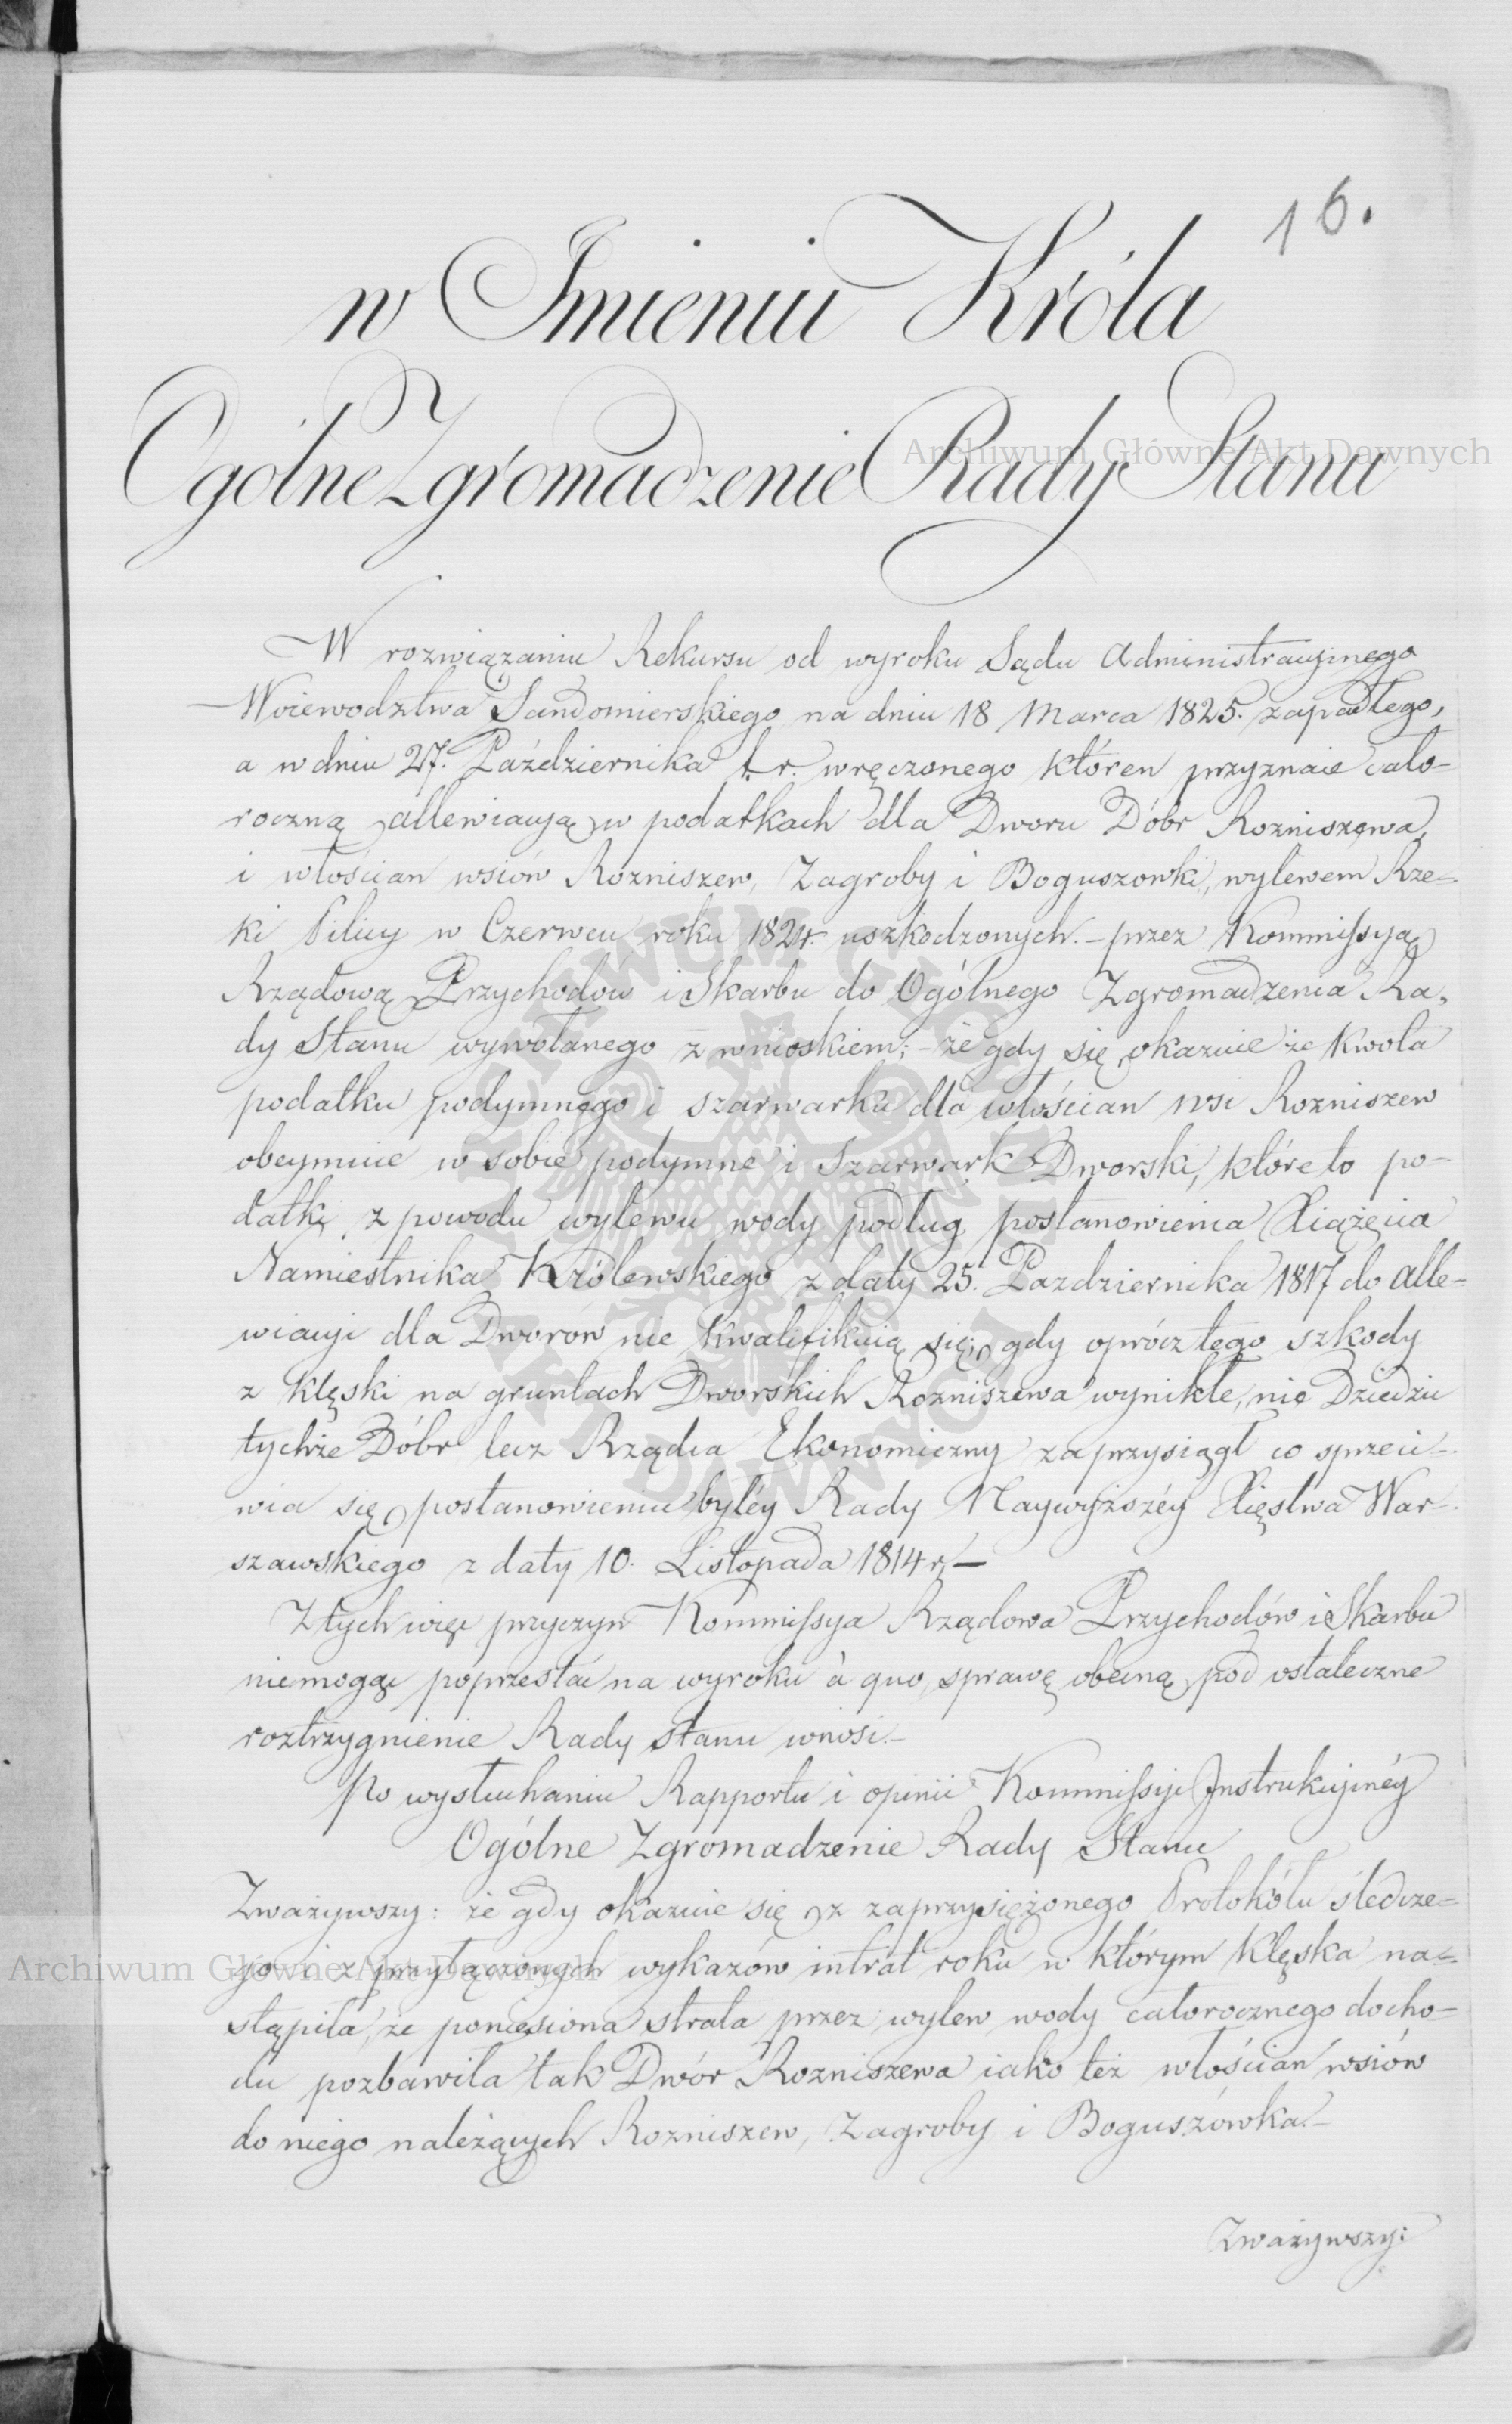 16.
w Imieniu Króla
Ogólne Zgromadzenie Rady Stanu
W rozwiązaniu Rekursu od wyroku Sądu Administracyinego
Woiewodztwa Sandomierskiego na dniu 18 Marca 1825. zapadłego,
a w dniu 27. Października t. r. wręczonego któren przyznaie cało-
roczną allewiacyą w podatkach dla Dworu Dóbr Rozniszewa,
i włościan wsiów Rozniszew, Zagroby i Boguszowki, wylewem Rze-
ki Pilicy w Czerwcu roku 1824. uszkodzonych. – przez Kommissyą
Rządową Przychodów i Skarbu do Ogólnego Zgromadzenia Ra-
dy Stanu wywołanego z wnioskiem; – że gdy się okazuie że kwota
podatku podymnego i szarwarku dla włościan wsi Rozniszew
obeymuie w sobie podymne i Szarwark Dworski, które to po-
datki z powodu wylewu wody podług postanowienia Xiążęcia
Namiestnika Królewskiego z daty 25. Pazdziernika 1817 do alle-
wiacyi dla Dworów nie kwalifikuią się; gdy oprócz tego szkody
z klęski na gruntach Dworskich Rozniszewa wynikłe, nie Dziedzic
tychże Dóbr lecz Rządca Ekonomiczny zaprzysiągł co sprzeci-
wia się postanowieniu byłéy Rady Naywyższéy Xięstwa War-
szawskiego z daty 10. Listopada 1814 r. –
Z tych więc przyczyn Kommissya Rządowa Przychodów i Skarbu
niemogąc poprzestać na wyroku à quo, sprawę obecną pod ostateczne
roztrzygnienie Rady Stanu wnosi. –
Po wysłuchaniu Rapportu i opinii Kommissyi Instrukcyinéy
Ogólne Zgromadzenie Rady Stanu
Zważywszy: że gdy okazuie się z zaprzysiężonego Protokółu śledcze-
go i z przyłączonych wykazów intrat roku w którym klęska na-
stąpiła, że poniesiona strata przez wylew wody całorocznego docho-
du pozbawiła tak Dwór Rozniszewa iako też włościan wsiów
do niego należących Rozniszew, Zagroby i Boguszówka. –
Zważywszy:
Archiwum Główne Akt Dawnych
Archiwum Główne Akt Dawnych
ARCHIWUM GŁÓWNE AKT DAWNYCH